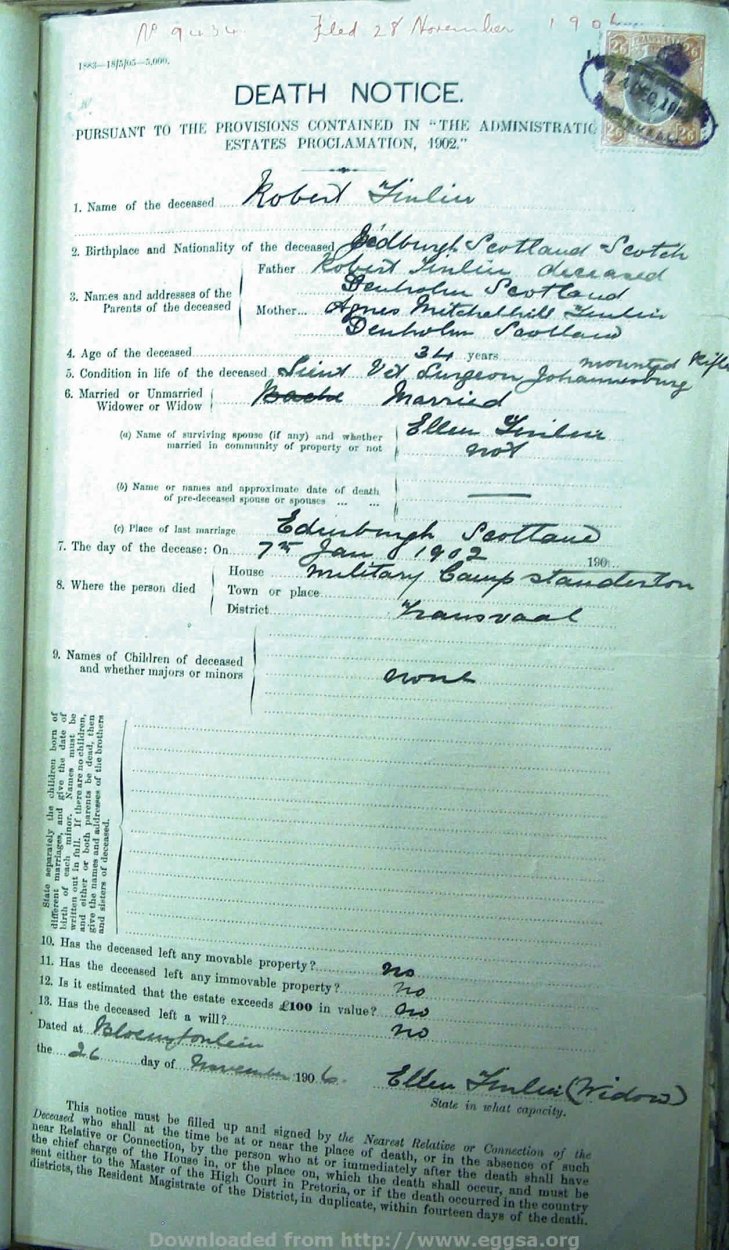 No 9434 Filed 28 November 1906
1883—18/5/05—5,000.
DEATH NOTICE.
PURSUANT TO THE PROVISIONS CONTAINED IN "THE ADMINISTRATIO
ESTATES PROCLAMATION, 1902."
1. Name of the deceased Robert Tinlin
2. Birthplace and Nationality of the deceased Jedburgh Scotland Scotch
3. Names and addresses of the Parents of the deceased Father Robert Tinlin deceased
Denholm Scotland
Mother... Agnes Mitchelhill Tinlin
Denholm Scotland
4. Age of the deceased 34 years
5. Condition in life of the deceased Lieut Vet Surgeon Johannesburg mounted Rifle
6. Married or Unmarried
Widower or Widow
Married
(a) Name of surviving spouse (if any) and whether
married in community of property or not
Ellen Tinlin
not
(b) Name or names and approximate date of death
of pre-deceased spouse or spouses ... ... —
(c) Place of last marriage Edinburgh Scotland
7. The day of the decease: On 7th Jan 1902 190
8. Where the person died House Military Camp Standerton
Town or place
District Transvaal
9. Names of Children of deceased
and whether majors or minors
none
State separately the children born of
different marriages, and give the date of
birth of each minor. Names must be
written out in full. If there are no children,
and either or both parents be dead, then
give the names and addresses of the brothers
and sisters of deceased.
10. Has the deceased left any movable property? no
11. Has the deceased left any immovable property? no
12. Is it estimated that the estate exceeds £100 in value? no
13. Has the deceased left a will? no
Dated at Bloemfontein
the 26 day of November 1906.
Ellen Tinlin (Widow)
State in what capacity.
This notice must be filled up and signed by the Nearest Relative or Connection of the
Deceased who shall at the time be at or near the place of death, or in the absence of such
near Relative or Connection, by the person who at or immediately after the death shall have
the chief charge of the House in, or the place on, which the death shall occur, and must be
sent either to the Master of the High Court in Pretoria, or if the death occurred in the country
districts, the Resident Magistrate of the District, in duplicate, within fourteen days of the death.
Downloaded from http://www.eggsa.org